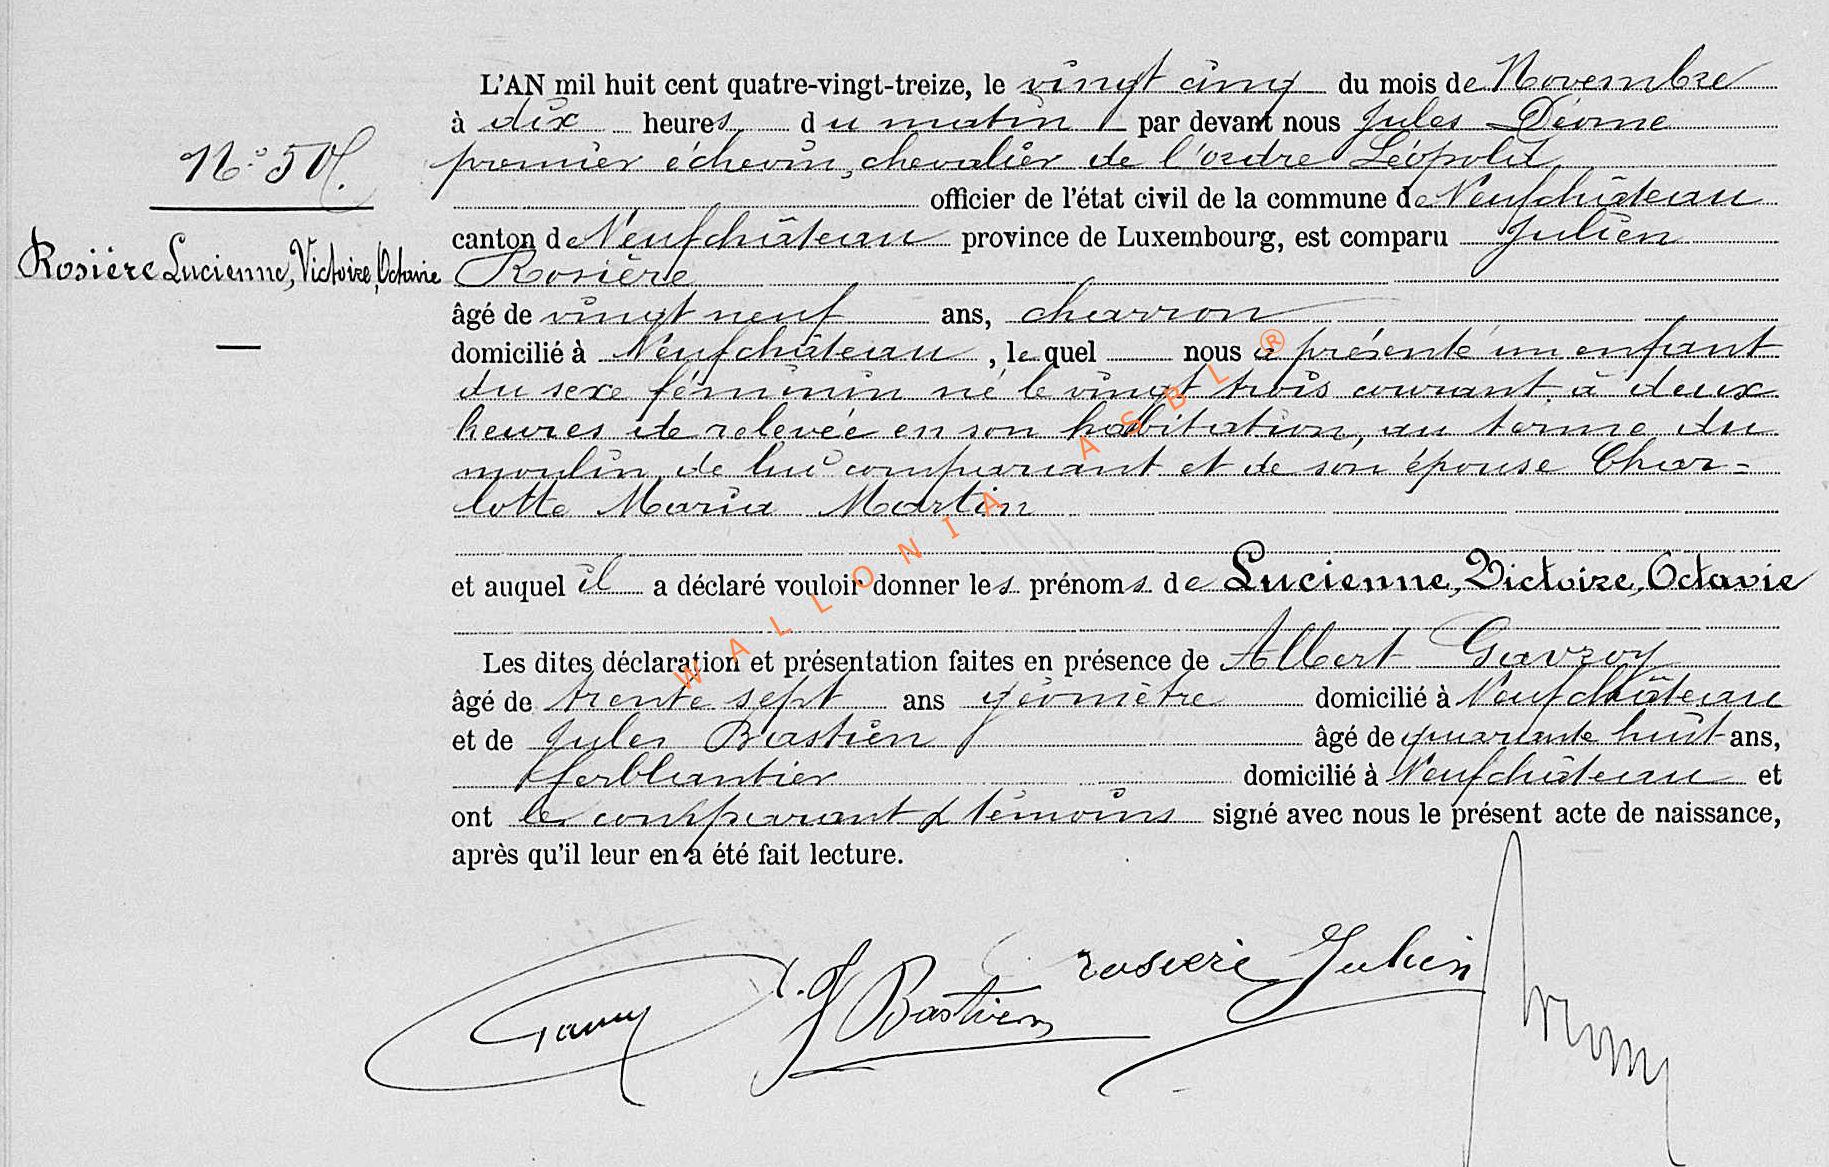 L'AN mil huit cent quatre-vingt-treize, le vingt cinq du mois de Novembre
à dix heures du matin par devant nous Jules Déome
premier échevin, chevalier de l'ordre Léopold
N°
officier de l'état civil de la commune de Neufchâteau
canton de Neufchâteau province de Luxembourg, est comparu Julien
Rosière Lucienne, Victoire, Octavie
Rosière
âgé de vingt neuf ans, charron
domicilié à Neufchâteau, lequel nous a présenté un enfant
du sexe féminin né le vingt trois courant à deux
heures de relevée en son habitation, au terme du
moulin, de lui comparant et de son épouse Char=
lotte Maria Martin
et auquel il a déclaré vouloir donner les prénoms de Lucienne, Victoire, Octavie
Les dites déclaration et présentation faites en présence de Albert Gavroy
âgé de trente sept ans géomètre domicilié à Neufchâteau
et de Jules Bastien âgé de quarante huit ans,
ferblantier domicilié à Neufchâteau et
ont les comparant & témoins signé avec nous le présent acte de naissance,
après qu'il leur en a été fait lecture.
rosiere Julien
J Bastien
WALLONIA ASBL ®